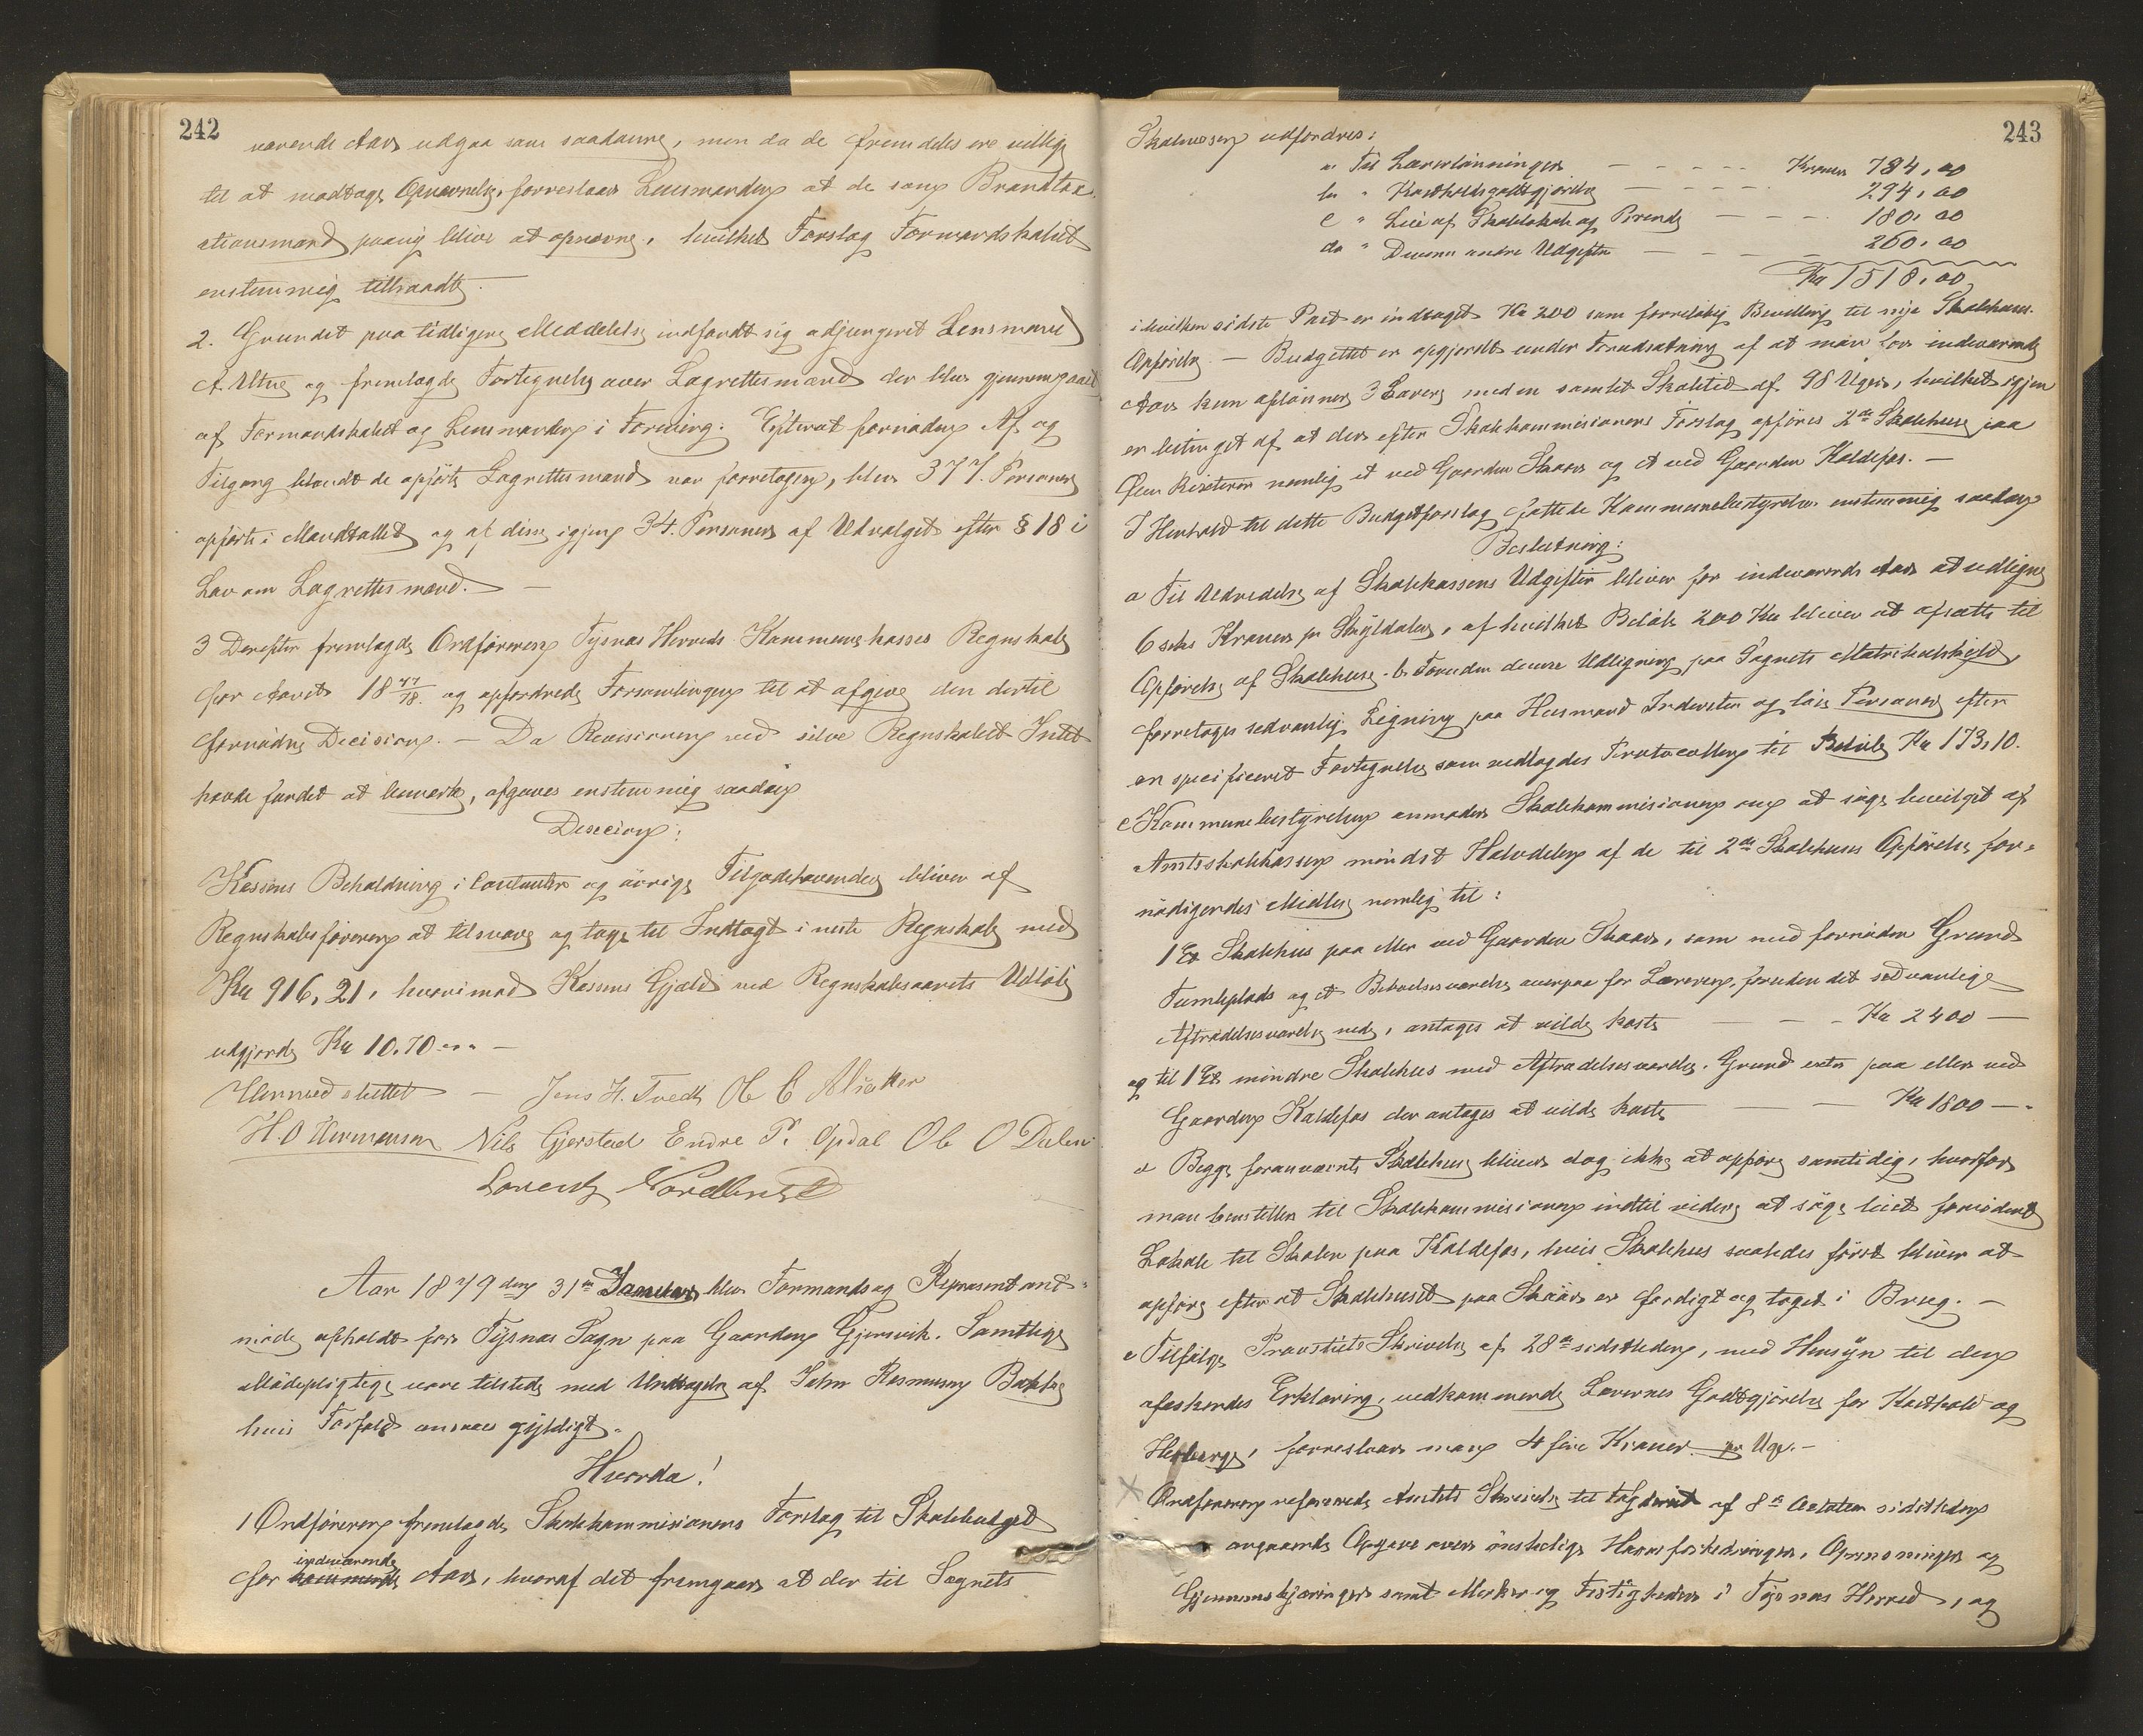 242
værende Aar udgaa som saadanne, men da de fremdeles ere villige
til at modtage Opnævnelse, foreslaar Lensmanden at de som Brandtax-
ationsmænd paany blive at opnævne, hvilket Forslag Formandskabet
enstemmig tiltraadte.
2. Grundet paa tidligere Meddelelse indfandt sig adjungeret Lensmand
A. Utne og fremlagde Fortegnelse over Lagrettesmænd der blev gjennemgaaet
af Formandskabet og Lensmanden i Forening. Efterat fornøden Af og
Tilgang blandt de opførte Lagrettesmænd var foretagen, blev 377. Personer
opførte i Mandtallet og af disse igjen 34. Personer af Udvalget efter § 18 i
Lov om Lagrettesmænd. —
3 Derefter fremlagde Ordføreren Tysnæs Herreds Kommunekasses Regnskab
for Aaret 18 77/78. og opfordrede Forsamlingen til at afgive den dertil
fornødne Decision. — Da Revisionen ved selve Regnskabet Intet
havde fundet at bemærke, afgaves enstemmig saadan
Decision:
Kassens Beholdning i Contanter og øvrige Tilgodehavender bliver af
Regnskabsføreren at tilsvare og tage til Indtægt i neste Regnskab med
Kr 916,21, hvorimod Kassens Gjæld ved Regnskabsaarets Udløb
udgjorde Kr 10.70 —
Hermed sluttet — Jens H. Tvedt Ole C
H. O Hermansen Nils Gjerstad Endre P. Opdal Ole O Dalen
Lorentz
Aar 1879 den 31te Januar blev Formands og Repræsentant-
møde afholdt for Tysnæs Sogn paa Gaarden Gjersvik. Samtlige
Mødepligtige vare tilstede med Undtagelse af John Rasmusen
hvis Forfald ansaaes gyldigt.
Hvorda!
1 Ordføreren fremlagde Skolekommisionens Forslag til Skolebudget
indeværende
for kommende Aar, hvoraf det fremgaar at der til Sognets
243
Skolevæsen udfordres:
a Til Lærerlønninger — - - - - Kroner 784,00
b " Kostholdsgodtgjørelse — - - - 294,00
c " Leie af Skolelokale og Brænde — - - - 180,00
d " Diverse andre Udgifter — - - - 260,00
Kr 1518,00
i hvilken sidste Post er indtaget Kr 200 som foreløbig Bevilling til nye Skolehuses
Opførelse. — Budgettet er opgjordt under Forudsætning af at man for indeværende
Aar kun aflønner 3 Lærere med en samlet Skoletid af 98 Uger, hvilket igjen
er betinget af at der efter Skolekommisionens Forslag opføres 2de Skolehuse paa
nemlig et ved Gaarden Skaar og et ved Gaarden Kaldefos. —
I Henhold til dette Budgetforslag fattede Kommunebestyrelsen enstemmig saadan
Beslutning:
a Til Udredelse af Skolekassens Udgifter bliver for indeværende Aar at udligne
6 seks Kroner pr Skylddaler, af hvilket Beløb 200 Kr bliver at afsætte til
Opførelse af Skolehuse. b. Foruden denne Udligning paa Sognets Matrikulskyld,
foretages sedvanlig Ligning paa Husmænd Inderster og løse Personer efter
en specificeret Fortegnelse som vedlagdes Protocollen til Beløb Kr 173,10.
c Kommunebestyrelsen anmoder Skolekommisionen om at søge bevilget af
Amtsskolekassen mindst Halvdelen af de til 2de Skolehuses Opførelse for-
nødigendes Midler nemlig til:
1 Et Skolehus paa eller ved Gaarden Skaar, som med fornøden Grund
Tumleplads og et Beboelsesværelse ovenpaa for Læreren, foruden det sedvanlige
Aftrædelsesværelse nede, antages at vilde koste — — - Kr 2400 —
og til 1 Et mindre Skolehus med Aftrædelsesværelse. Grund extr paa eller ved
Gaarden Kaldefos der antages at vilde koste — — Kr 1800 —
d Begge forannævnte Skolehuse bliver dog ikke at opføre samtidig, hvorfor
man henstiller til Skolekommisionen indtil videre at søge leiet fornødent
Lokale til Skolen paa Kaldefos, hvis Skolehus saaledes først bliver at
opføre efter at Skolehuset paa Skaar er færdigt og taget i Brug. —
e Tilfølge Provstiets Skrivelse af 28de sidstleden, med Hensyn til den
afæskendes Erklæring, vedkommende Lærernes Godtgjørelse for Kosthold og
Herberge, foreslaar man 4 fire Kroner pr Uge. —
Ordføreren refererede Amtets Skrivelse til Fogderiet af 8de October sidstleden
angaaende Opgave over ønskelige Havneforbedringer, Oprensninger og
Gjennemskjæringer samt Mærker og Festigheder i Tysnæs Herred, og